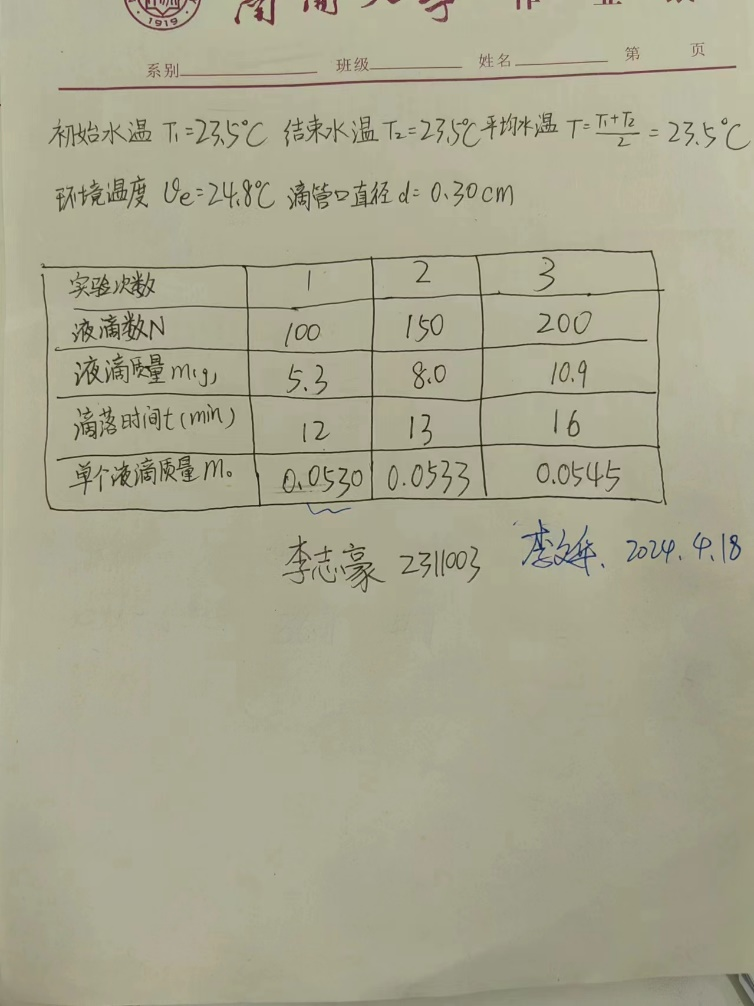 1919
南开大学 作业纸
系别 班级 姓名 第 页
初始水温 T₁=23.5℃ 结束水温 T₂=23.5℃ 平均水温 T=\frac{T₁+T₂}{2}=23.5℃
环境温度 θe=24.8℃ 滴管口直径 d=0.30cm
实验次数 1 2 3
液滴数N 100 150 200
液滴质量m(g) 5.3 8.0 10.9
滴落时间t(min) 12 13 16
单个液滴质量m₀ 0.0530 0.0533 0.0545
李志豪 2311003 2024.4.18